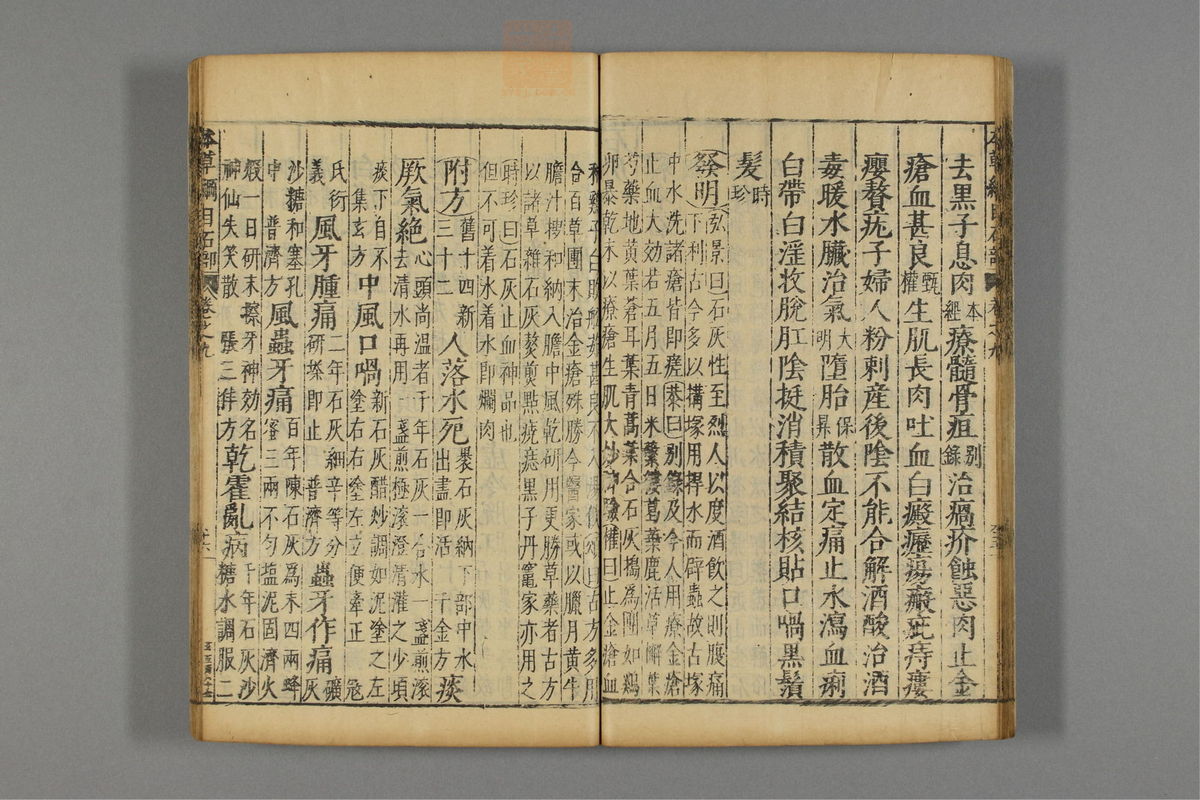 本草綱目石部 卷之九
去黑子息肉本經療髓骨疽別錄治瘑疥蝕惡肉止金
瘡血甚良甄權生肌長肉吐血白癜癧瘍瘢疵痔瘻
癭贅疣子婦人粉刺産後陰不能合解酒酸治酒
毒暖水臟治氣大明墮胎保昇散血定痛止水瀉血痢
白帶白淫收脫肛陰挺消積聚結核貼口喎黑鬚
髮時珍
發明弘景曰石灰性至烈人以度酒飲之則腹痛
下利古今多以搆塚用捍水而辟蟲故古塚
中水洗諸瘡皆即瘥恭曰別錄及今人用療金瘡
止血大効若五月五日采蘩蔞葛葉鹿活草檞葉
芍藥地黄葉蒼耳葉青蒿葉合石灰搗爲團如鷄
卵暴乾末以療瘡生肌大妙神驗權曰止金瘡血
和雞子白敗船茹甚良不入湯飲頌曰古方多用
合百草團末治金瘡殊勝今醫家或以臘月黄牛
膽汁搜和納入膽中風乾研用更勝草藥者古方
以諸草雜石灰熬煎點疣痣黑子丹竈家亦用之
時珍曰石灰止血神品也
但不可着水着水即爛肉
附方舊十四新三十二 人落水死裹石灰納下部中水出盡即活 千金方 痰
厥氣絕心頭尚溫者千年石灰一合水一盞煎滚
去清水再用一盞煎極滚澄清灌之少頃
痰下自不 集玄方 中風口喎新石灰醋炒調如泥塗之左塗右右塗左立便牽正 寇
氏衍義 風牙腫痛二年石灰細辛等分研搽即止 普濟方 蟲牙作痛礦灰
沙糖和塞孔中 普濟方 風蟲牙痛百年陳石灰爲末四兩蜂蜜三兩和勻塩泥固濟火
煅一日研末擦牙神効名神仙失笑散 張三丰方 乾霍亂病千年石灰沙糖水調服二
本草綱目石部 卷之九 廿六